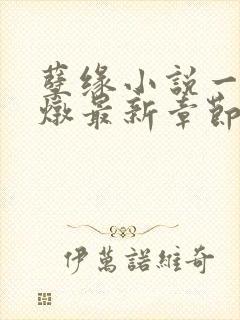 孽缘小說一
燉最新章節
伊萬諾維奇